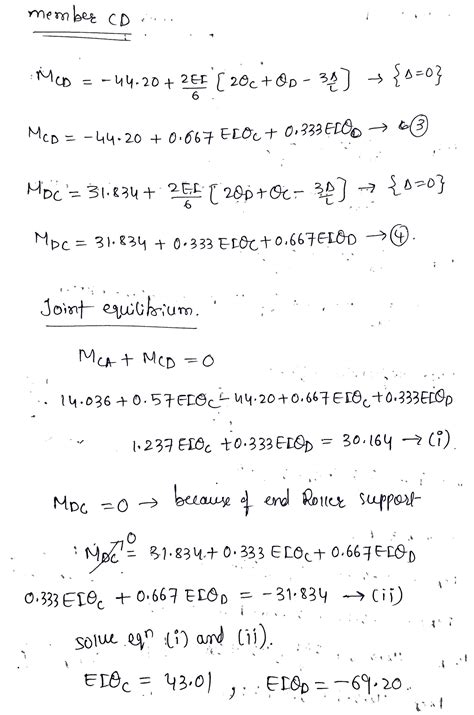 member CD
M_CD = -44.20 + 2EI/6 [2θc + θD - 3Δ/L] → {Δ=0}
M_CD = -44.20 + 0.667 EIθc + 0.333EIθD → ③
M_DC = 31.834 + 2EI/6 [2θD + θc - 3Δ/L] → {Δ=0}
M_DC = 31.834 + 0.333 EIθc + 0.667EIθD → ④.
Joint equilibrium.
M_CA + M_CD = 0
14.036 + 0.57EIθc - 44.20 + 0.667EIθc + 0.333EIθD
1.237 EIθc + 0.333EIθD = 30.164 → (i)
M_DC = 0 → because of end Roller support
0
M_DC = 31.834 + 0.333 EIθc + 0.667EIθD
0.333 EIθc + 0.667 EIθD = -31.834 → (ii)
solve eqn (i) and (ii).
EIθc = 43.01 , EIθD = -69.20